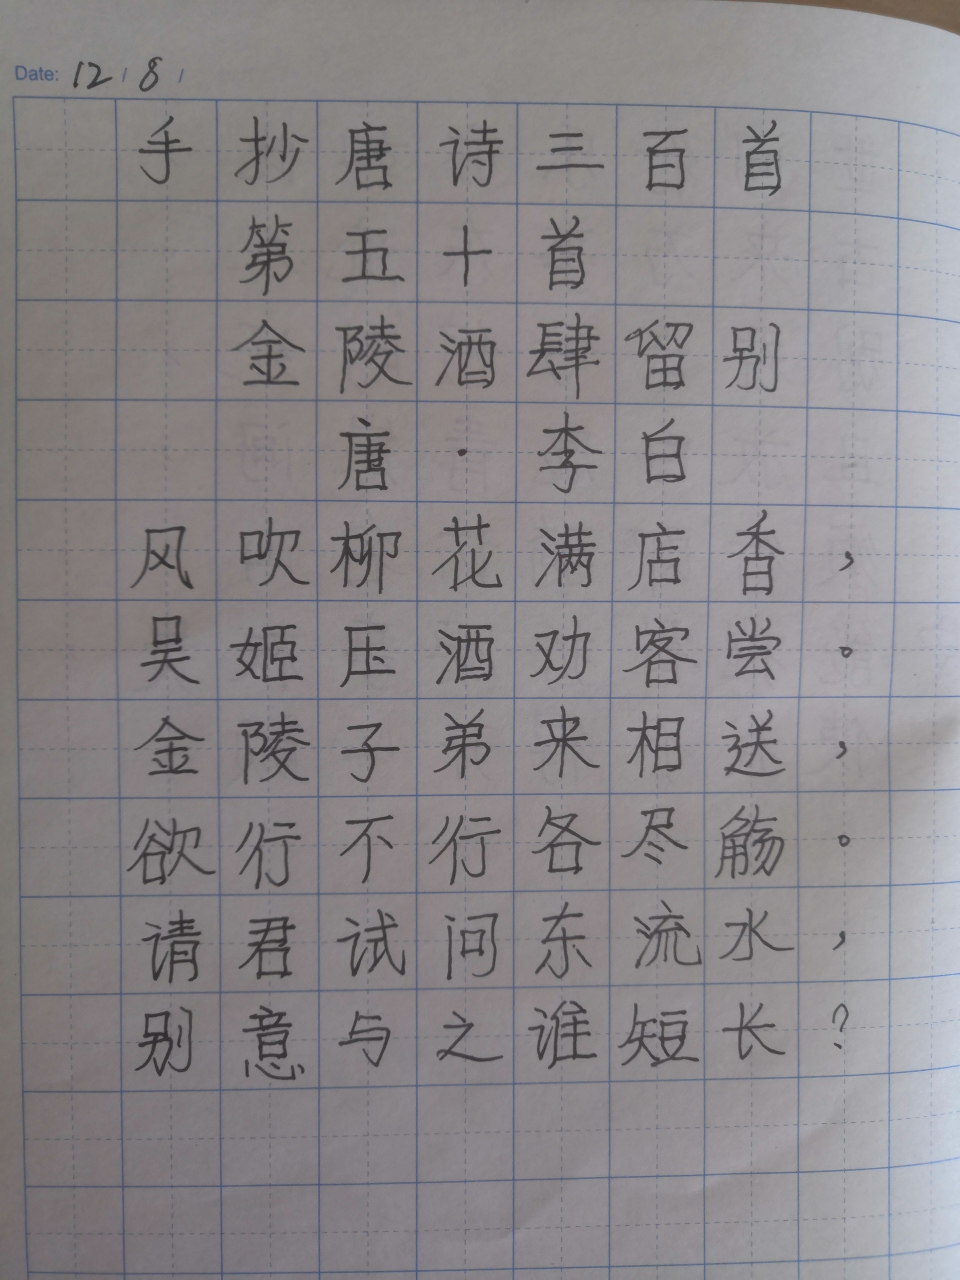 Date: 12 / 8 /
手抄唐诗三百首
第五十首
金陵酒肆留别
唐·李白
风吹柳花满店香，
吴姬压酒劝客尝。
金陵子弟来相送，
欲行不行各尽觞。
请君试问东流水，
别意与之谁短长？